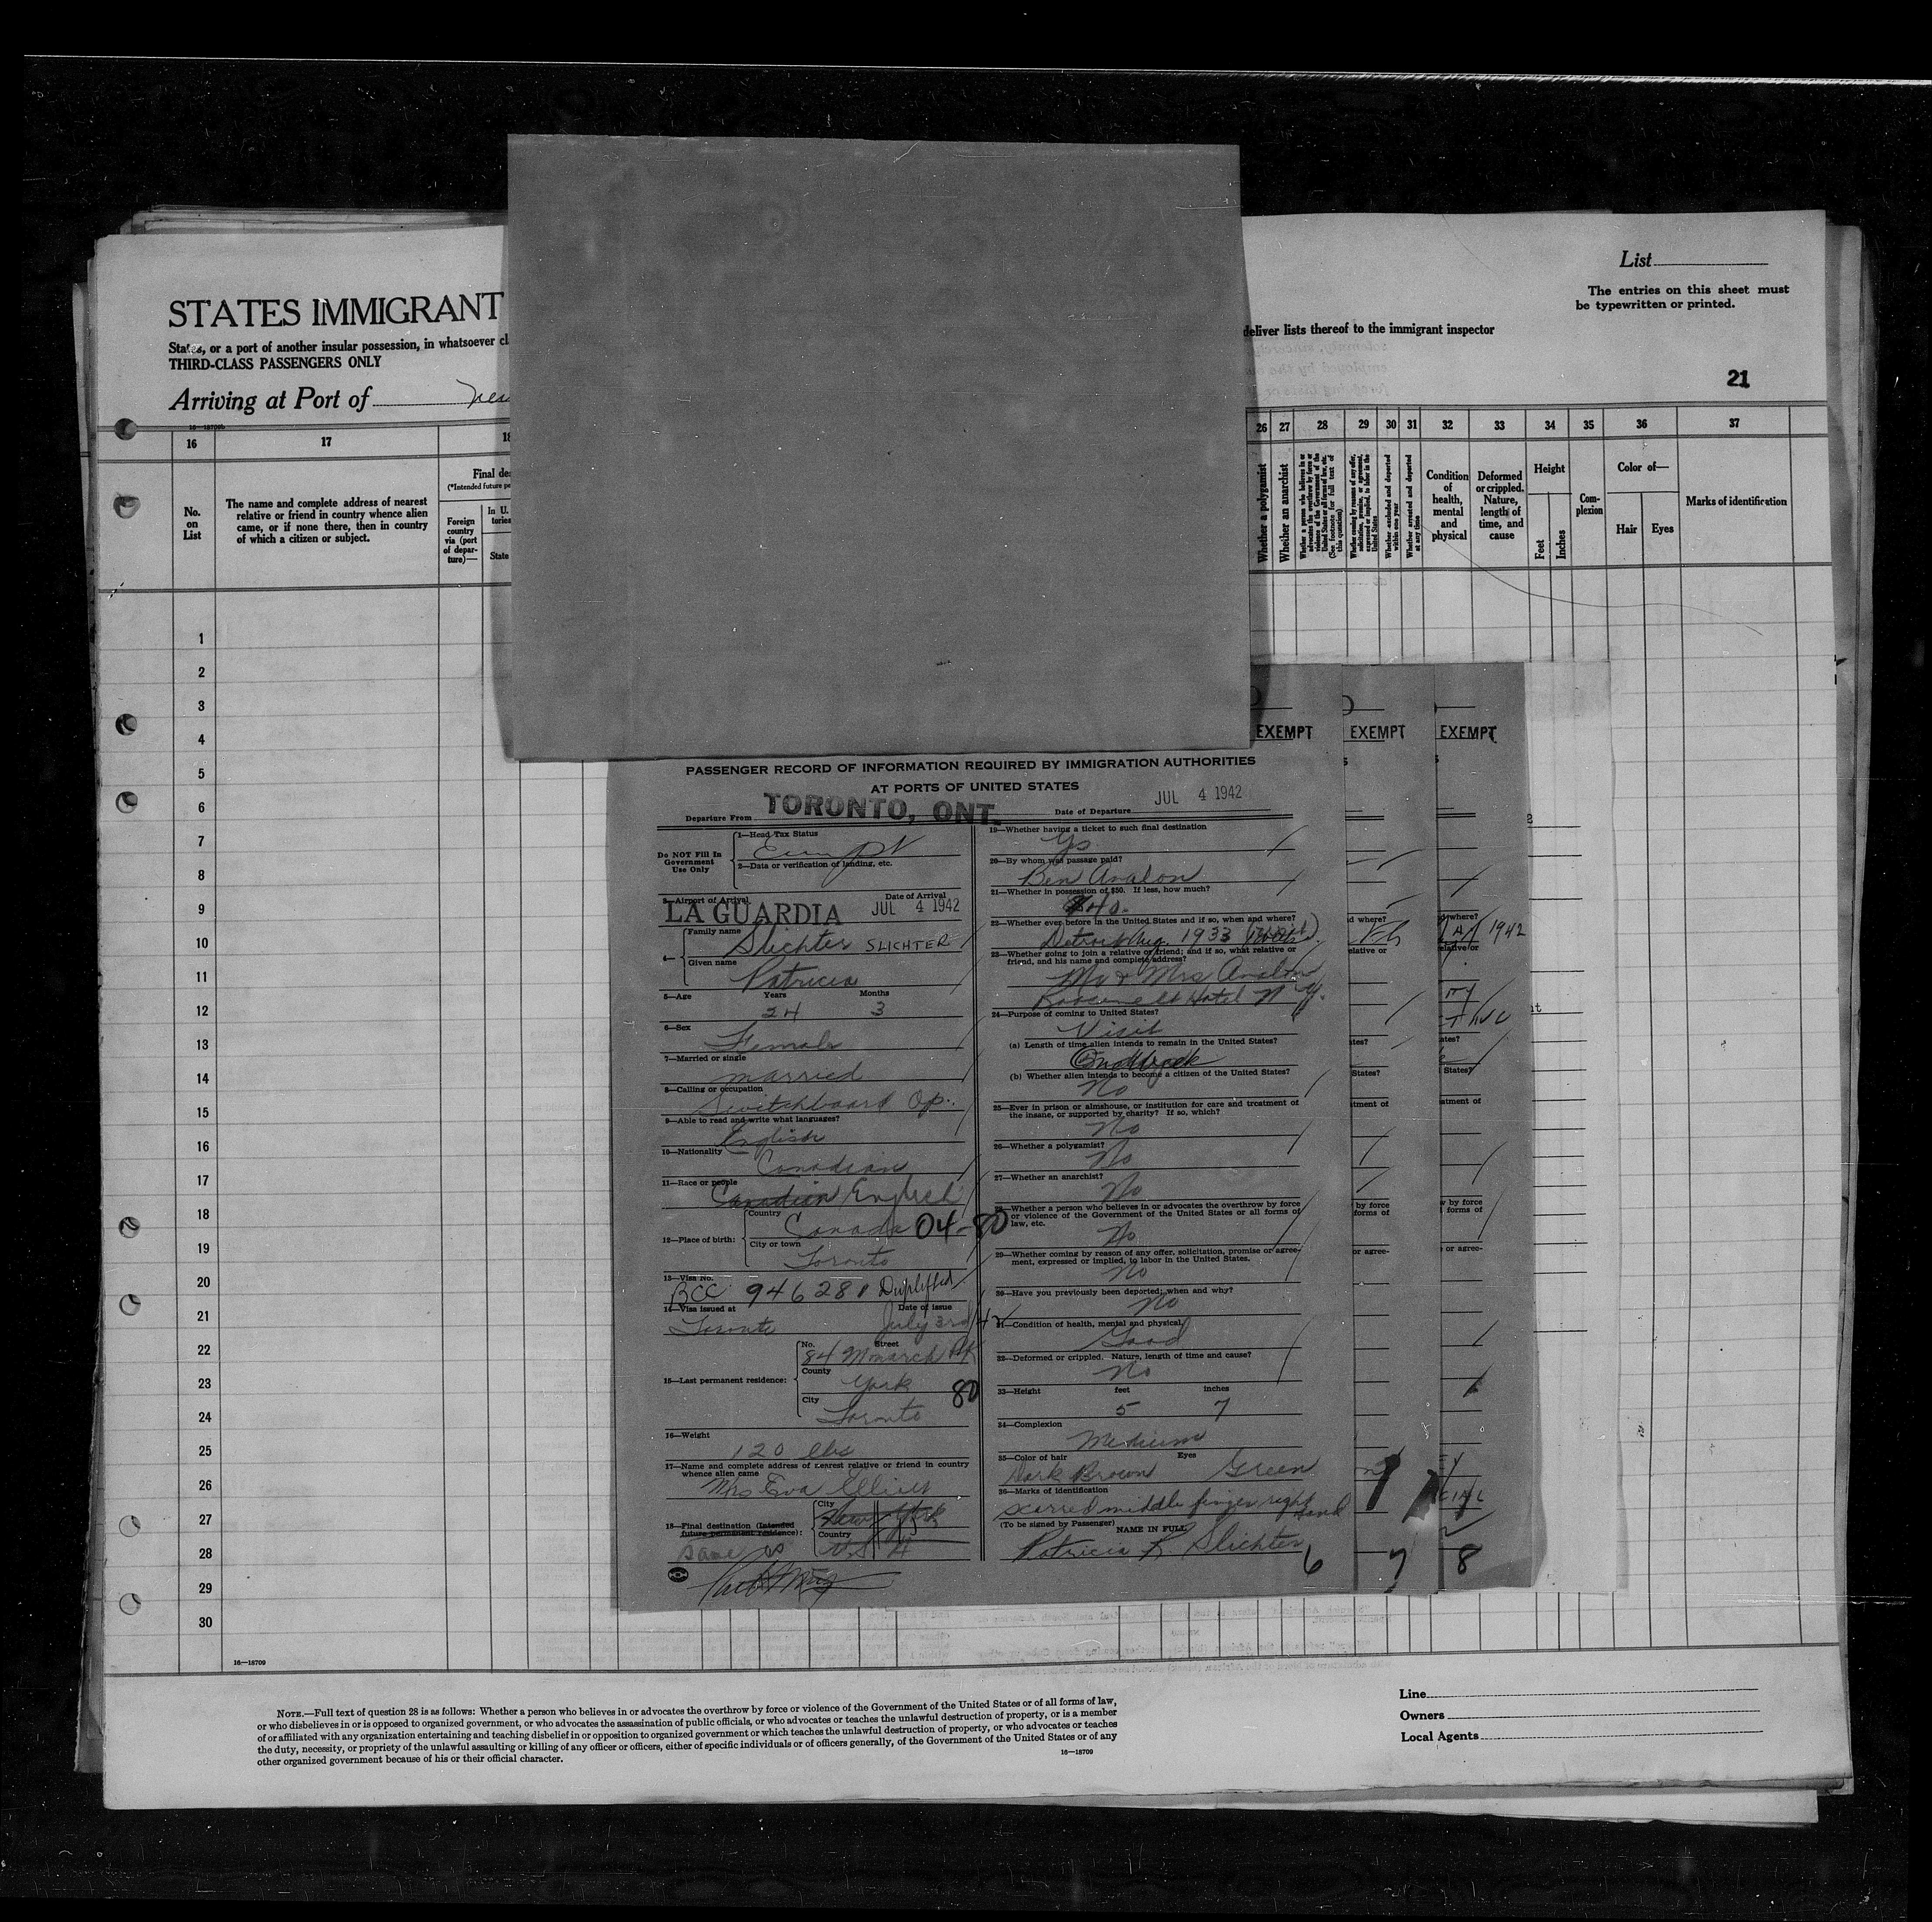 List
The entries on this sheet must
be typewritten or printed.
STATES IMMIGRANT
States, or a port of another insular possession, in whatsoever cl
deliver lists thereof to the immigrant inspector
THIRD-CLASS PASSENGERS ONLY
21
Arriving at Port of New
16 17 18
26 27 28 29 30 31 32 33 34 35 36 37
No.
on
List
The name and complete address of nearest
relative or friend in country whence alien
came, or if none there, then in country
of which a citizen or subject.
Final des
(*Intended future pe
Foreign
country
via (port
of depar-
ture)—
In U.
State
Whether a polygamist
Whether an anarchist
Whether excluded and deported
within one year
Whether arrested and deported
at any time
Condition
of
health,
mental
and
physical
Deformed
or crippled.
Nature,
length of
time, and
cause
Height
Feet
Inches
Com-
plexion
Color of—
Hair
Eyes
Marks of identification
1
2
3
4
5
6
7
8
9
10
11
12
13
14
15
16
17
18
19
20
21
22
23
24
25
26
27
28
29
30
16—18709
EXEMPT EXEMPT EXEMPT
PASSENGER RECORD OF INFORMATION REQUIRED BY IMMIGRATION AUTHORITIES
AT PORTS OF UNITED STATES
Departure From TORONTO, ONT.
Date of Departure JUL 4 1942
Do NOT Fill In
Government
Use Only
1—Head Tax Status
Exempt
2—Data or verification of landing, etc.
3—Airport of Arrival
Date of Arrival
LA GUARDIA JUL 4 1942
4—
Family name
Slichter SLICHTER
Given name
Patricia
5—Age Years Months
24 3
6—Sex
Female
7—Married or single
married
8—Calling or occupation
Switchboard Op.
9—Able to read and write what languages?
English
10—Nationality
Canadian
11—Race or people
Canadian English
12—Place of birth:
Country
Canada 04-80
City or town
Toronto
13—Visa No.
BCC 946281
14—Visa issued at Date of issue
Toronto July 3rd/42
15—Last permanent residence:
No. Street
84 Monarch Pk
County
York
80
City
Toronto
16—Weight
120 lbs
17—Name and complete address of nearest relative or friend in country
whence alien came
Mrs Eva Elliott
18—Final destination (Intended
future permanent residence):
City
New York
Country
U.S.
same as
19—Whether having a ticket to such final destination
Yes
20—By whom was passage paid?
Ben Avalon
21—Whether in possession of $50. If less, how much?
$40.
22—Whether ever before in the United States and if so, when and where?
Detroit Aug. 1933
23—Whether going to join a relative or friend; and if so, what relative or
friend, and his name and complete address?
Mr & Mrs Avalon
Roosevelt Hotel N.Y.
24—Purpose of coming to United States?
Visit
(a) Length of time alien intends to remain in the United States?
One Week
(b) Whether alien intends to become a citizen of the United States?
No
25—Ever in prison or almshouse, or institution for care and treatment of
the insane, or supported by charity? If so, which?
No
26—Whether a polygamist?
No
27—Whether an anarchist?
No
28—Whether a person who believes in or advocates the overthrow by force
or violence of the Government of the United States or all forms of
law, etc.
No
29—Whether coming by reason of any offer, solicitation, promise or agree-
ment, expressed or implied, to labor in the United States.
No
30—Have you previously been deported; when and why?
No
31—Condition of health, mental and physical.
Good
32—Deformed or crippled. Nature, length of time and cause?
No
33—Height feet inches
5 7
34—Complexion
Medium
35—Color of hair Eyes
Dark Brown Green
36—Marks of identification
scarred middle finger right hand
(To be signed by Passenger) NAME IN FULL
Patricia R. Slichter
6 7 8
1942
NOTE.—Full text of question 28 is as follows: Whether a person who believes in or advocates the overthrow by force or violence of the Government of the United States or of all forms of law,
or who disbelieves in or is opposed to organized government, or who advocates the assassination of public officials, or who advocates or teaches the unlawful destruction of property, or is a member
of or affiliated with any organization entertaining and teaching disbelief in or opposition to organized government or which teaches the unlawful destruction of property, or who advocates or teaches
the duty, necessity, or propriety of the unlawful assaulting or killing of any officer or officers, either of specific individuals or of officers generally, of the Government of the United States or of any
other organized government because of his or their official character.
16—18709
Line
Owners
Local Agents